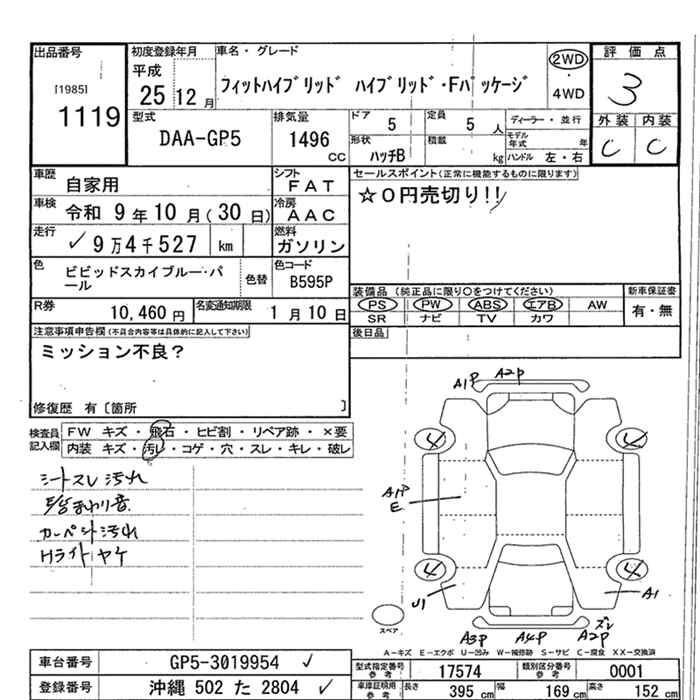 出品番号
[1985]
1119
初度登録年月
平成
25 12 月
車名・グレード
フィットハイブリッド ハイブリッド・Fパッケージ
2WD
・
4WD
評価点
3
外装 内装
C C
型式
DAA-GP5
排気量
1496
CC
ドア
5
定員
5 人
形状
ハッチB
積載
kg
ディーラー・並行
モデル年式 年
ハンドル 左・右
車歴
自家用
シフト
FAT
車検
令和 9年10月(30日)
冷房
AAC
走行
✓ 9万4千527 km
燃料
ガソリン
色
ビビッドスカイブルー・パール
色替
色コード
B595P
R券
10,460 円
名変通知期限
1月10日
セールスポイント(正常に機能するものに限ります)
☆0円売切り!!
装備品(純正品に限り○をつけてください)
PS PW ABS エアB AW
SR ナビ TV カワ
新車保証書
有・無
後日品
注意事項申告欄(不具合内容等は具体的に記入して下さい)
ミッション不良?
修復歴 有〔箇所 〕
検査員記入欄
FW キズ・飛石・ヒビ割・リペア跡・×要
内装 キズ・汚レ・コゲ・穴・スレ・キレ・破レ
シートスレ 汚れ
まわり音
カーペット汚れ
Hライトヤケ
A1P A2P
4 4
A1P
E
4 4
U1 A1
スペア
A3P A4P A2P ズレ
A-キズ E-エクボ U-凹み W-補修跡 S-サビ C-腐食 XX-交換済
車台番号
GP5-3019954 ✓
登録番号
沖縄 502 た 2804 ✓
型式指定番号
参考
17574
類別区分番号
参考
0001
車庫証明用
参考
長さ 395 cm
幅 169 cm
高さ 152 cm